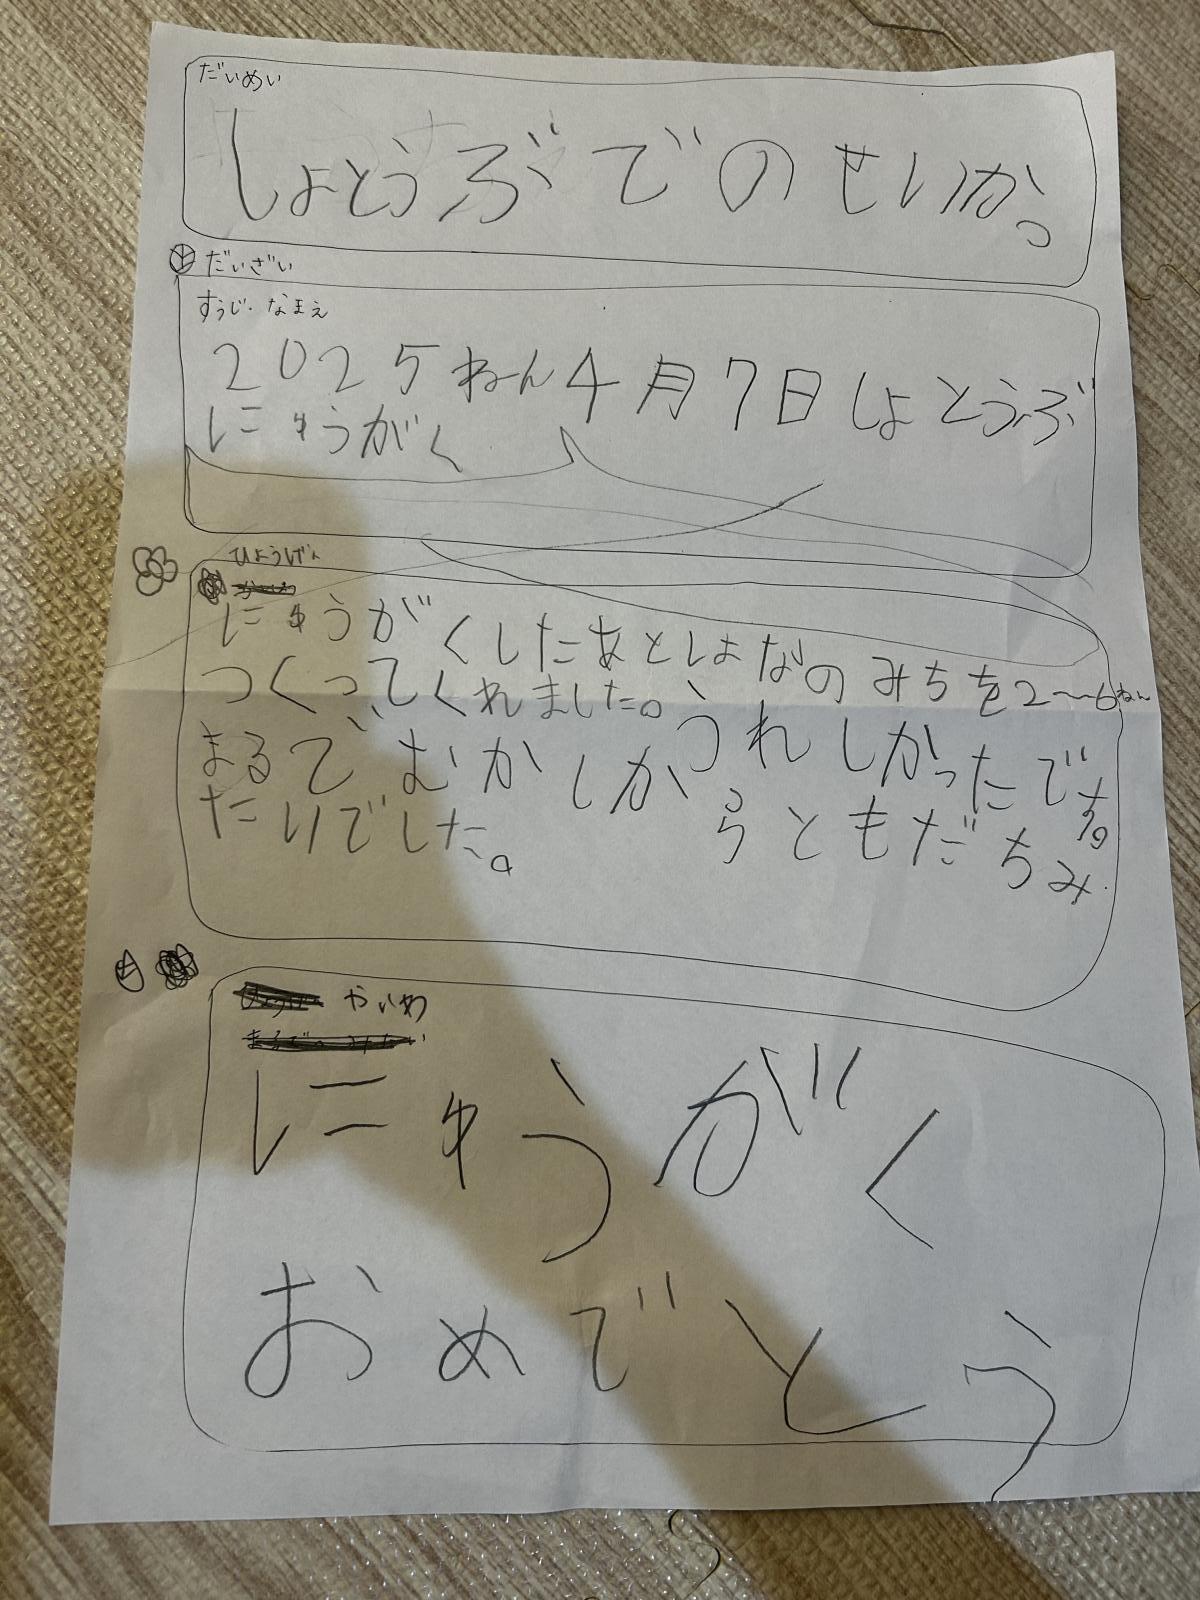 だいめい
しょとうぶでのせいかつ
だいざい
すうじ・なまえ
2025ねん4月7日しょとうぶ
にゅうがく
ひょうげん
にゅうがくしたあとしょなのみちを2〜6ねん
つくってくれました。うれしかったです。
まるでむかしからともだちみ
たいでした。
かいわ
にゅうがく
おめでとう